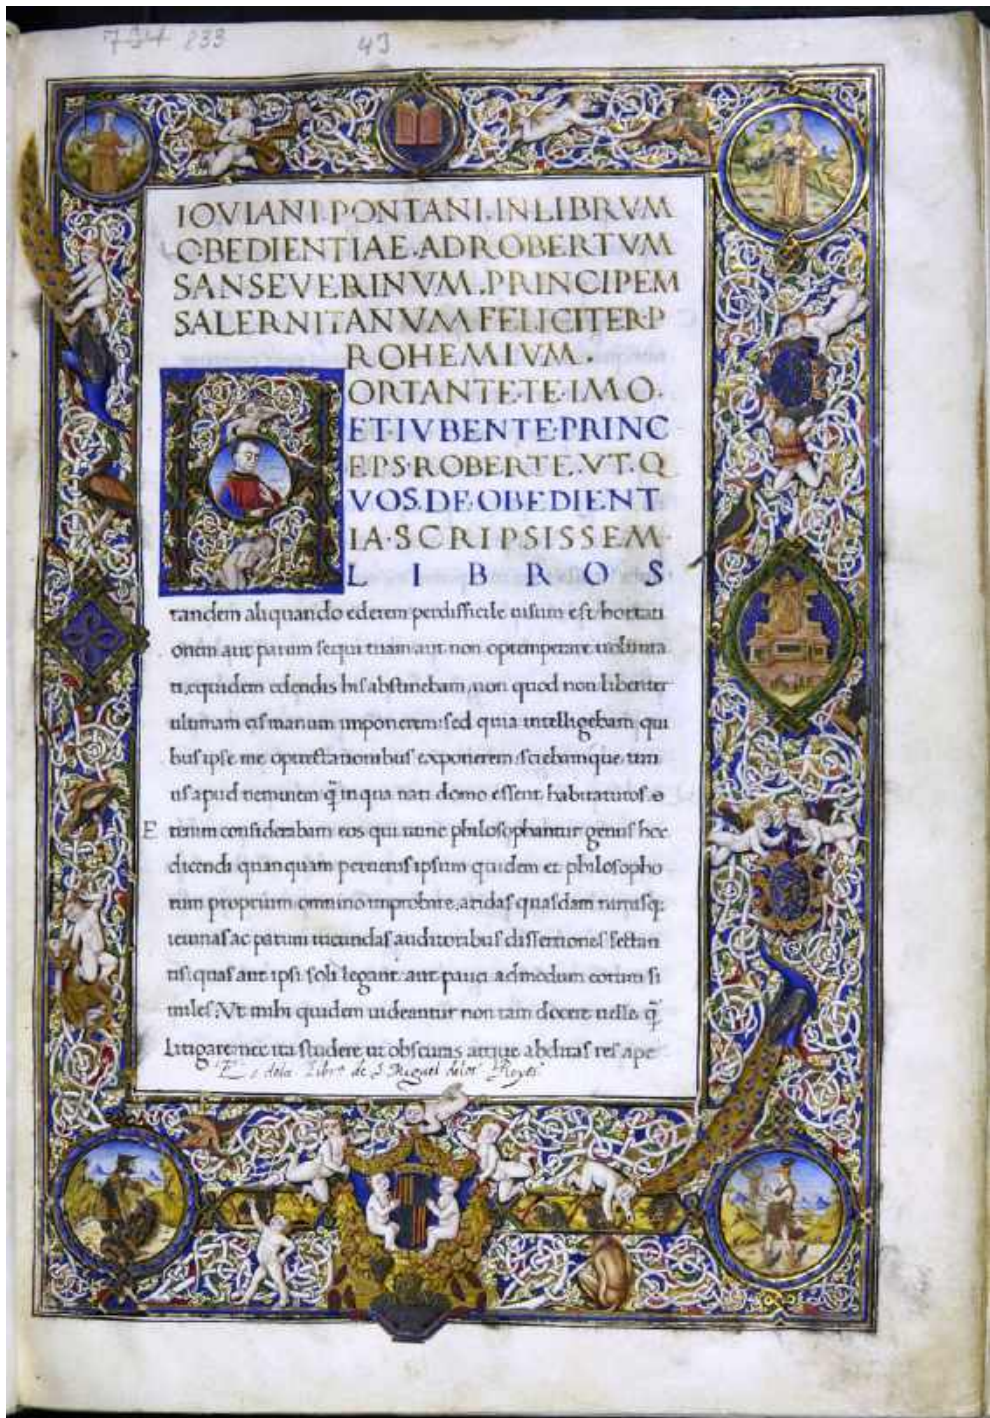 734 233
43
IOVIANI.PONTANI.INLIBRVM
OBEDIENTIAE.ADROBERTVM
SANSEVERINVM.PRINCIPEM
SALERNITANVM FELICITER.P
ROHEMIVM.
ORTANTE.TE.IMO.
ET.IVBENTE.PRINC
EPS.ROBERTE.VT.Q
VOS.DE.OBEDIENT
IA.SCRIPSISSEM.
LIBROS
tandem aliquando ederem perdifficile uisum est hortati
onem aut parum sequi tuam aut non optemperare uolunta
ti, equidem edendis his abstinebam, non quod non libenter
ultimam eis manum imponerem: sed quia intelligebam, qui
bus ipse me optrectationibus exponerem: sciebamque uni
us apud neminem q̃ in qua nati domo essent habitaturos. e
E tenim considerabam eos qui nunc philosophantur genus hoc
dicendi quanquam peruetus ipsum quidem et philosopho
rum proprium omnino improbare, aridas quasdam nimisq;
ieiunas ac parum iucundas auditoribus dissertiones sectan
tis: quas aut ipsi soli legant aut pauci admodum eorum si
miles. Vt mihi quidem uideantur non tam docere uelle q̃
Litigare: nec ita studere ut obscuras atque abditas res ape
Es dela Libra de S Miguel delos Reyes